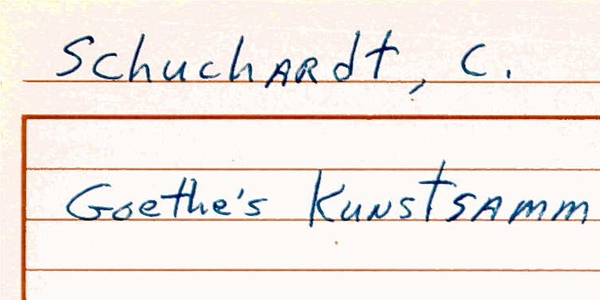 Schuchardt, C.
Goethe's Kunstsamm